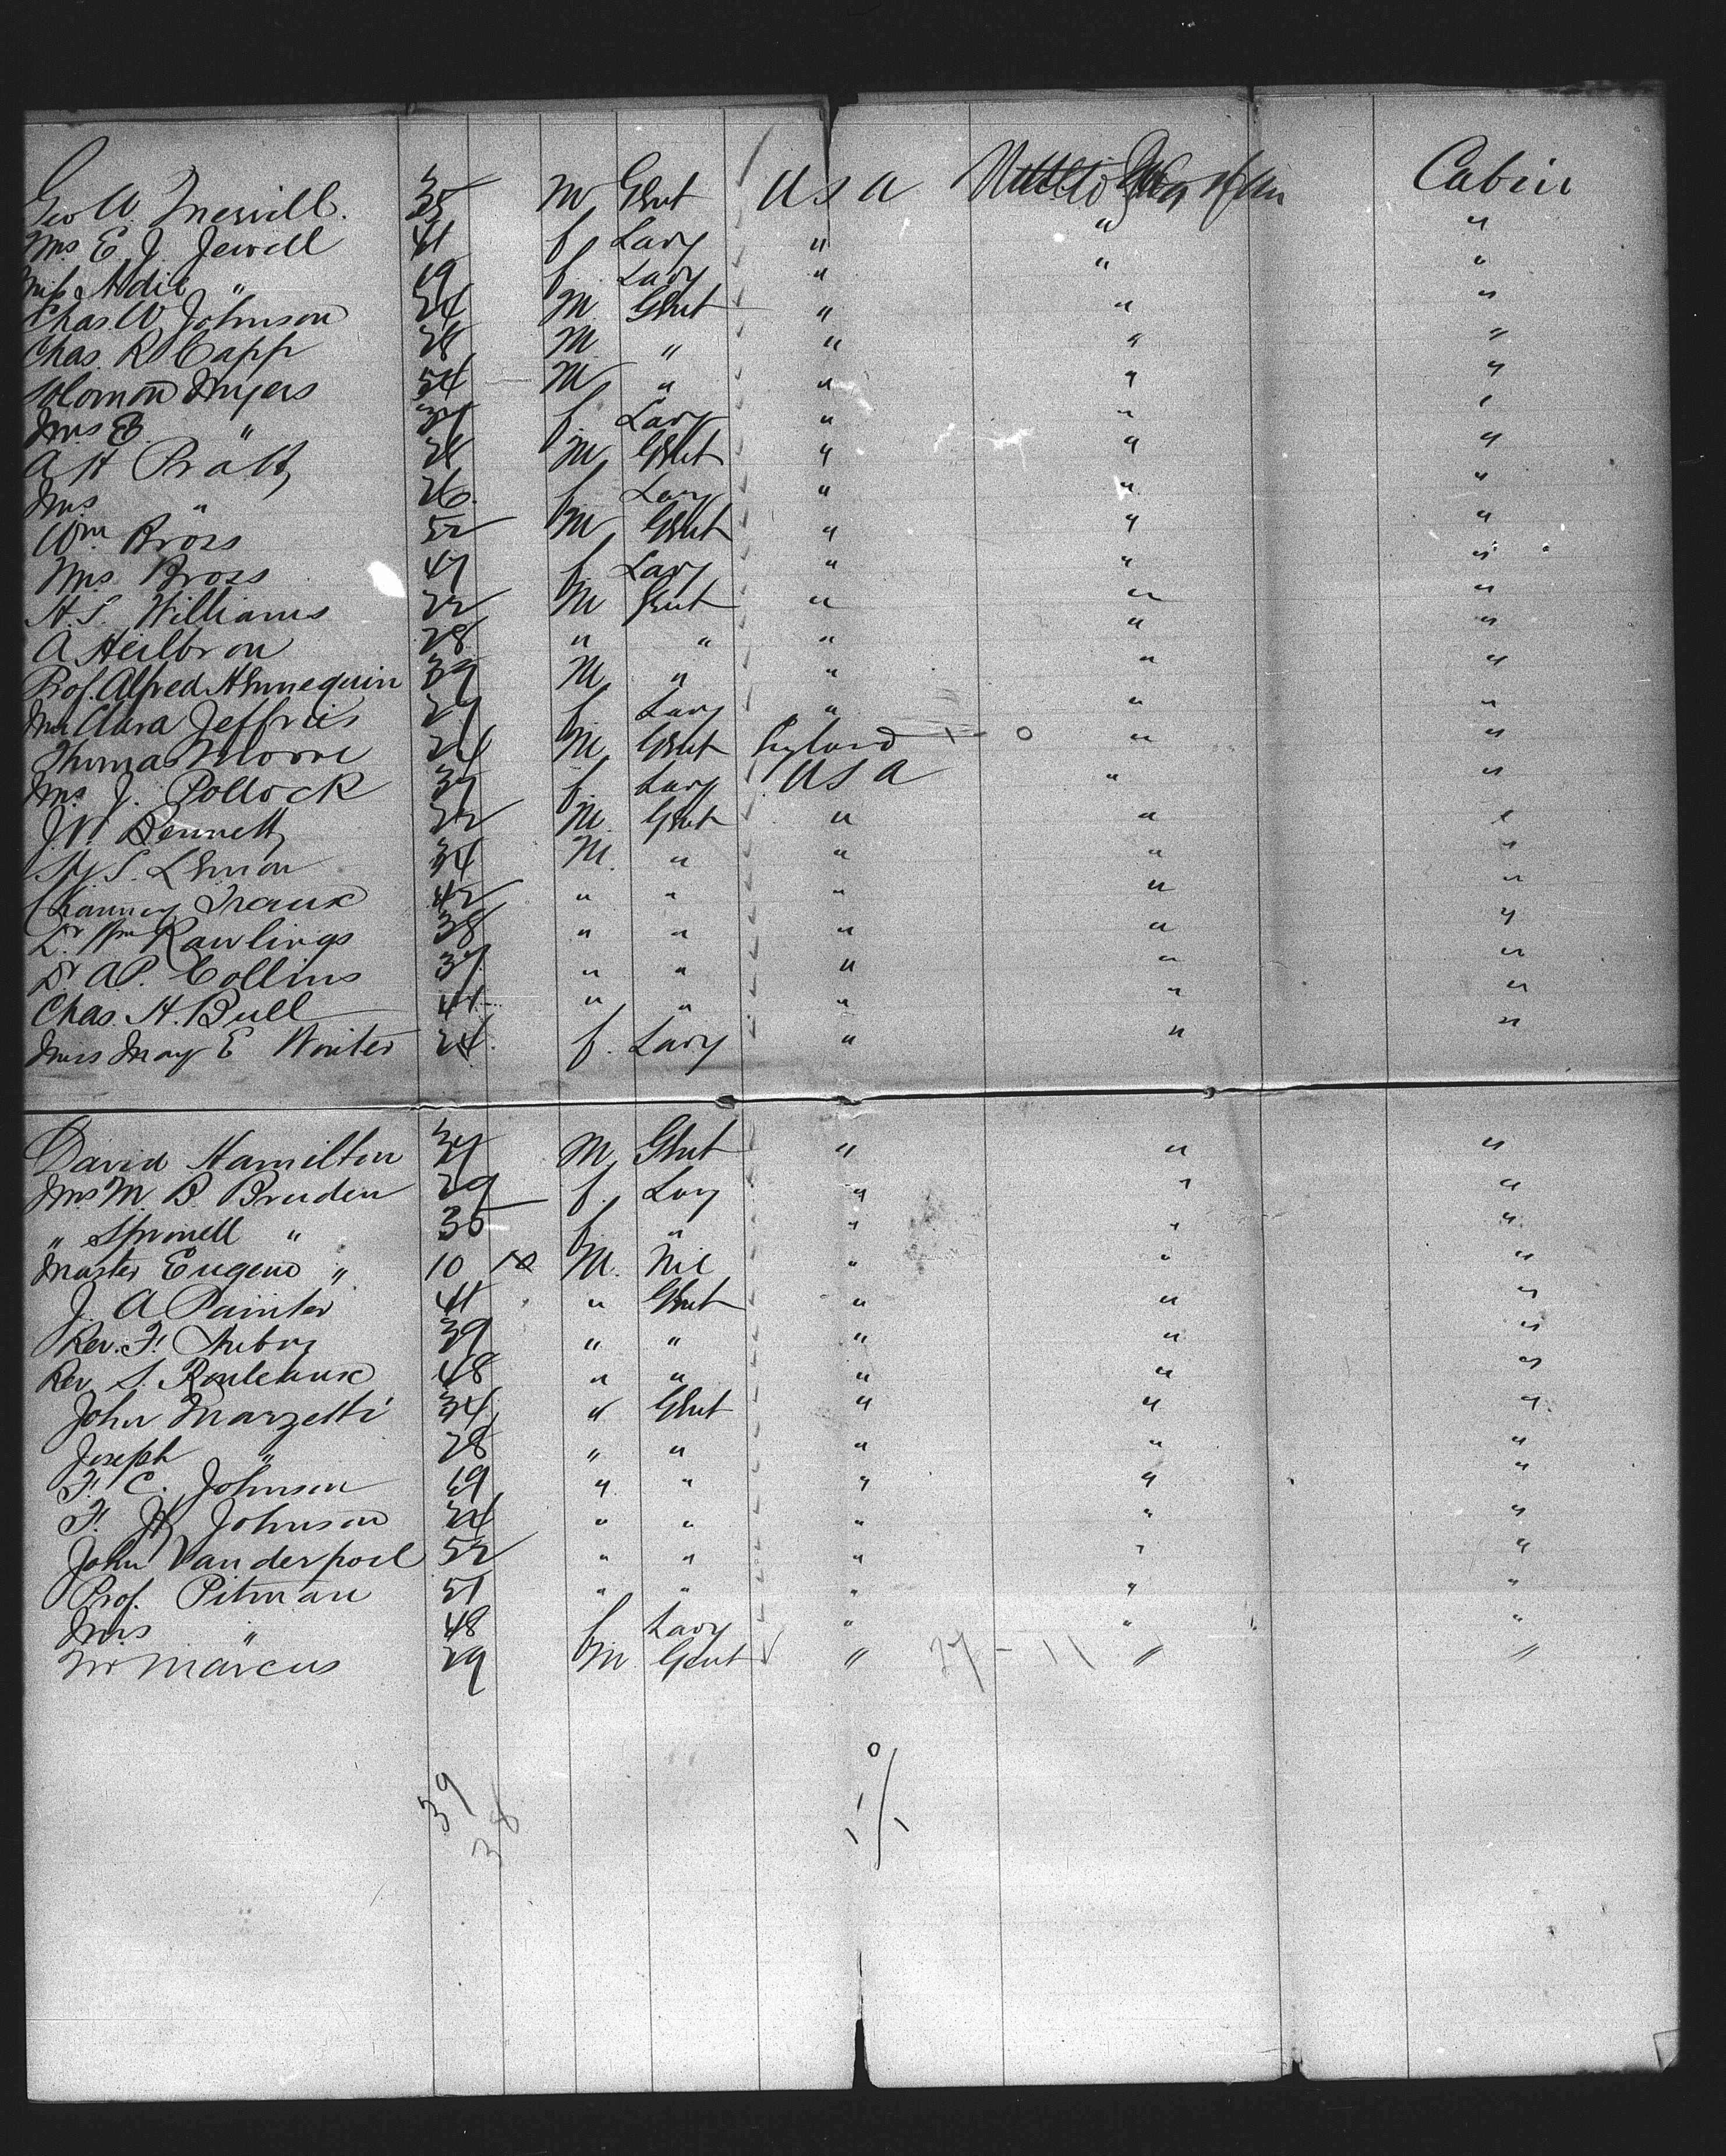 Geo W. Merrill. 35 M Gent U S A Cabin
Mrs E. J. Jewell 41 f Lady " " "
Miss Adie " 19 f Lady " " "
Chas W Johnson 24 M Gent " " "
Chas. R Capp 28 M " " " "
Solomon Myers 54 M " " " "
Mrs B. " 37 f Lady " " "
A H Pratt 28 M Gent " " "
Mrs " 26 f Lady " " "
Wm Bross 52 M Gent " " "
Mrs Bross 47 f Lady " " "
H. S. Williams 22 M Gent " " "
A Heilbron 28 " " " " "
Prof. Alfred Hennequin 39 M " " " "
Clara Jeffries 27 f Lady " " "
Thomas Moore 24 M Gent England 1 - 0 " "
Mrs J. Pollock 37 f. Lady U S A " "
J W. Bennett 22 M Gent " " "
Hy S. Lemon 34 M. " " " "
42 " " " " "
Dr Wm Rawlings 38 " " " " "
Dr A. P. Collins 37 " " " " "
Chas. H. Bull 41 " " " " "
Miss May E Winter 24 f. Lady " " "
David Hamilton 37 M Gent " " "
Mrs M. B. Bruden 29 f. Lady " " "
" " 35 f " " " "
Master Eugene " 10 10 M. Nil " " "
J. A Painter 41 " Gent " " "
Rev. F. Aubry 39 " " " " "
Rev S. Rouleaux 48 " " " " "
John Marzetti 34 " Gent " " "
Joseph " 28 " " " " "
F. C. Johnson 19 " " " " "
F. Hy Johnson 24 " " " " "
John Vanderpoel 52 " " " " "
Prof. Pitman 51 " " " " "
Mrs " 48 f Lady " " "
Mr Marcus 29 M Gent " 27 - 11 " "
39
38